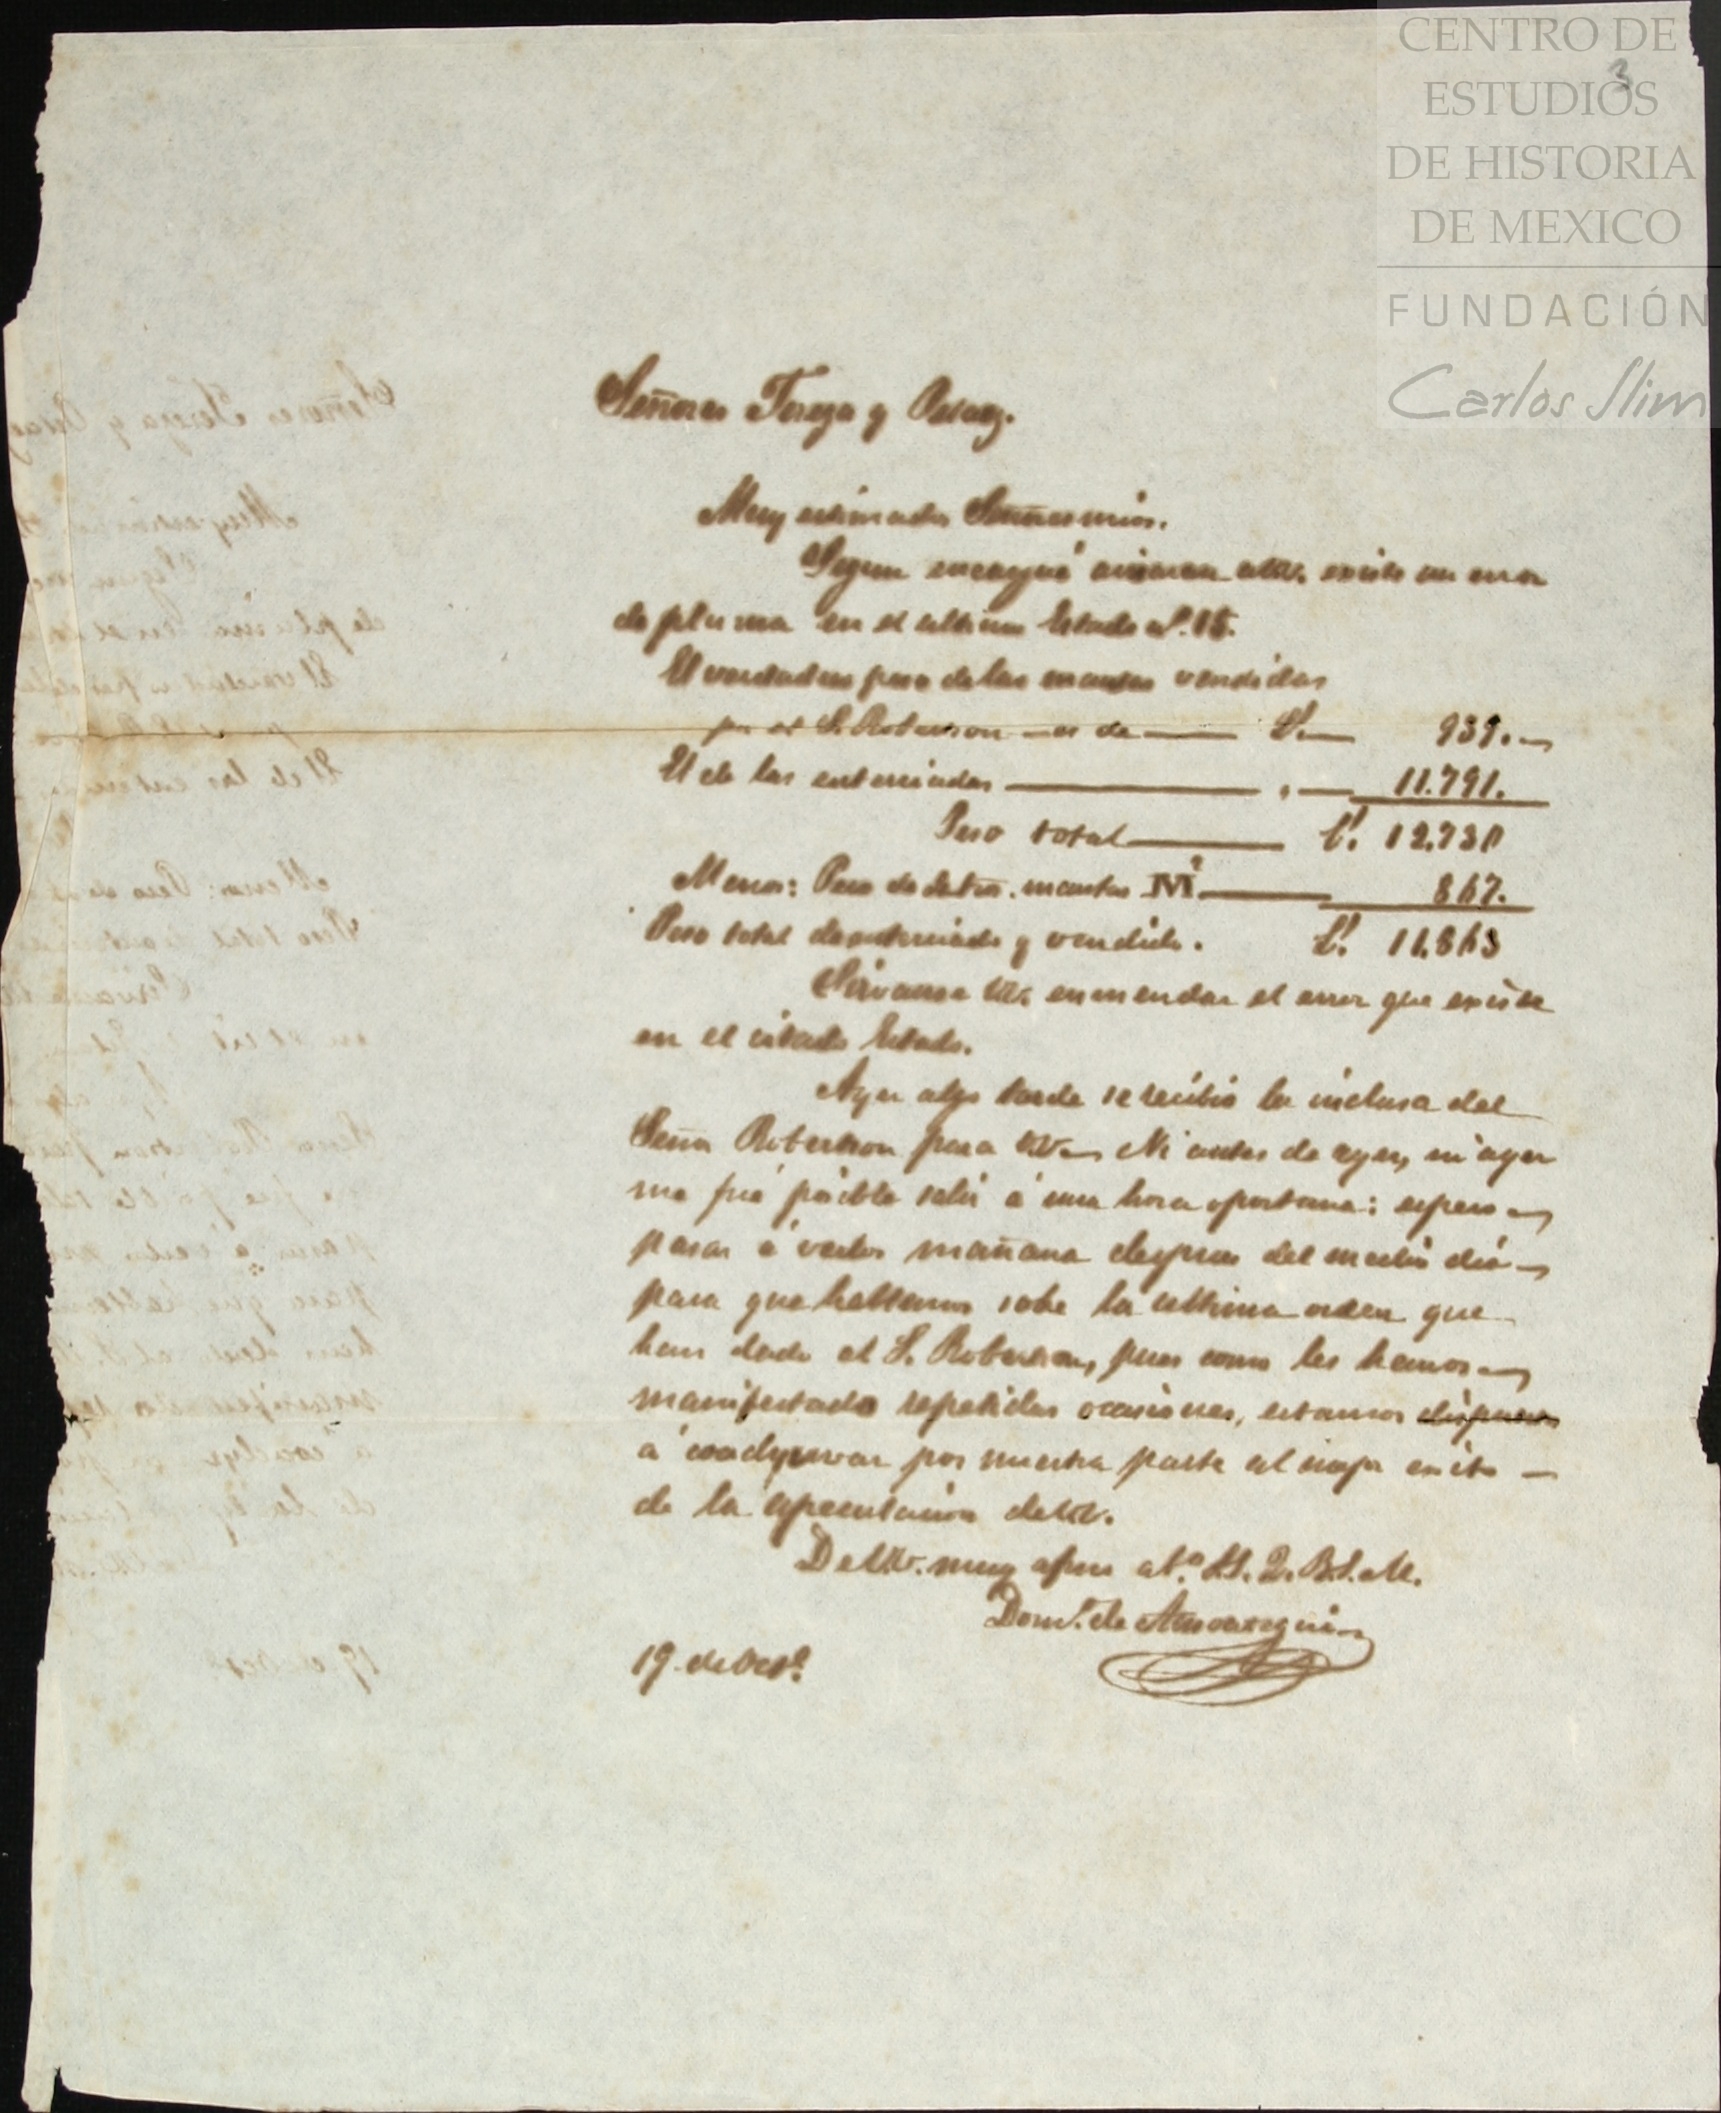 CENTRO DE
ESTUDIOS
DE HISTORIA
DE MEXICO
FUNDACIÓN
Carlos Slim
3
Señores y
Muy estimados Señores mios.
Segun encargué avisaran a VV. existe un error
de pluma en el ultimo Estado nº. 15.
El verdadero peso de las mantas vendidas
por el S. Robertson es de 939.
El de las enterciadas 11.791.
Peso total 12.730
Menos: Peso de mantas 867.
Peso total de enterciado y vendido. 11.863
Sirvanse VV. enmendar el error que existe
en el citado Estado.
Ayer algo tarde se recibió la inclusa del
Señor Robertson para VV. Ni antes de ayer, ni ayer
me fué posible salir á una hora oportuna: espero
pasar á verlos mañana despues del medio dia
para que hablemos sobre la ultima orden que
han dado al S. Robertson, pues como les hemos
manifestado repetidas ocasiones, estamos dispuestos
á coadyuvar por nuestra parte al mejor exito
de la especulacion de VV.
De VV. muy afmo atº. S.S. Q. B. S. M.
Domº. de
19 de